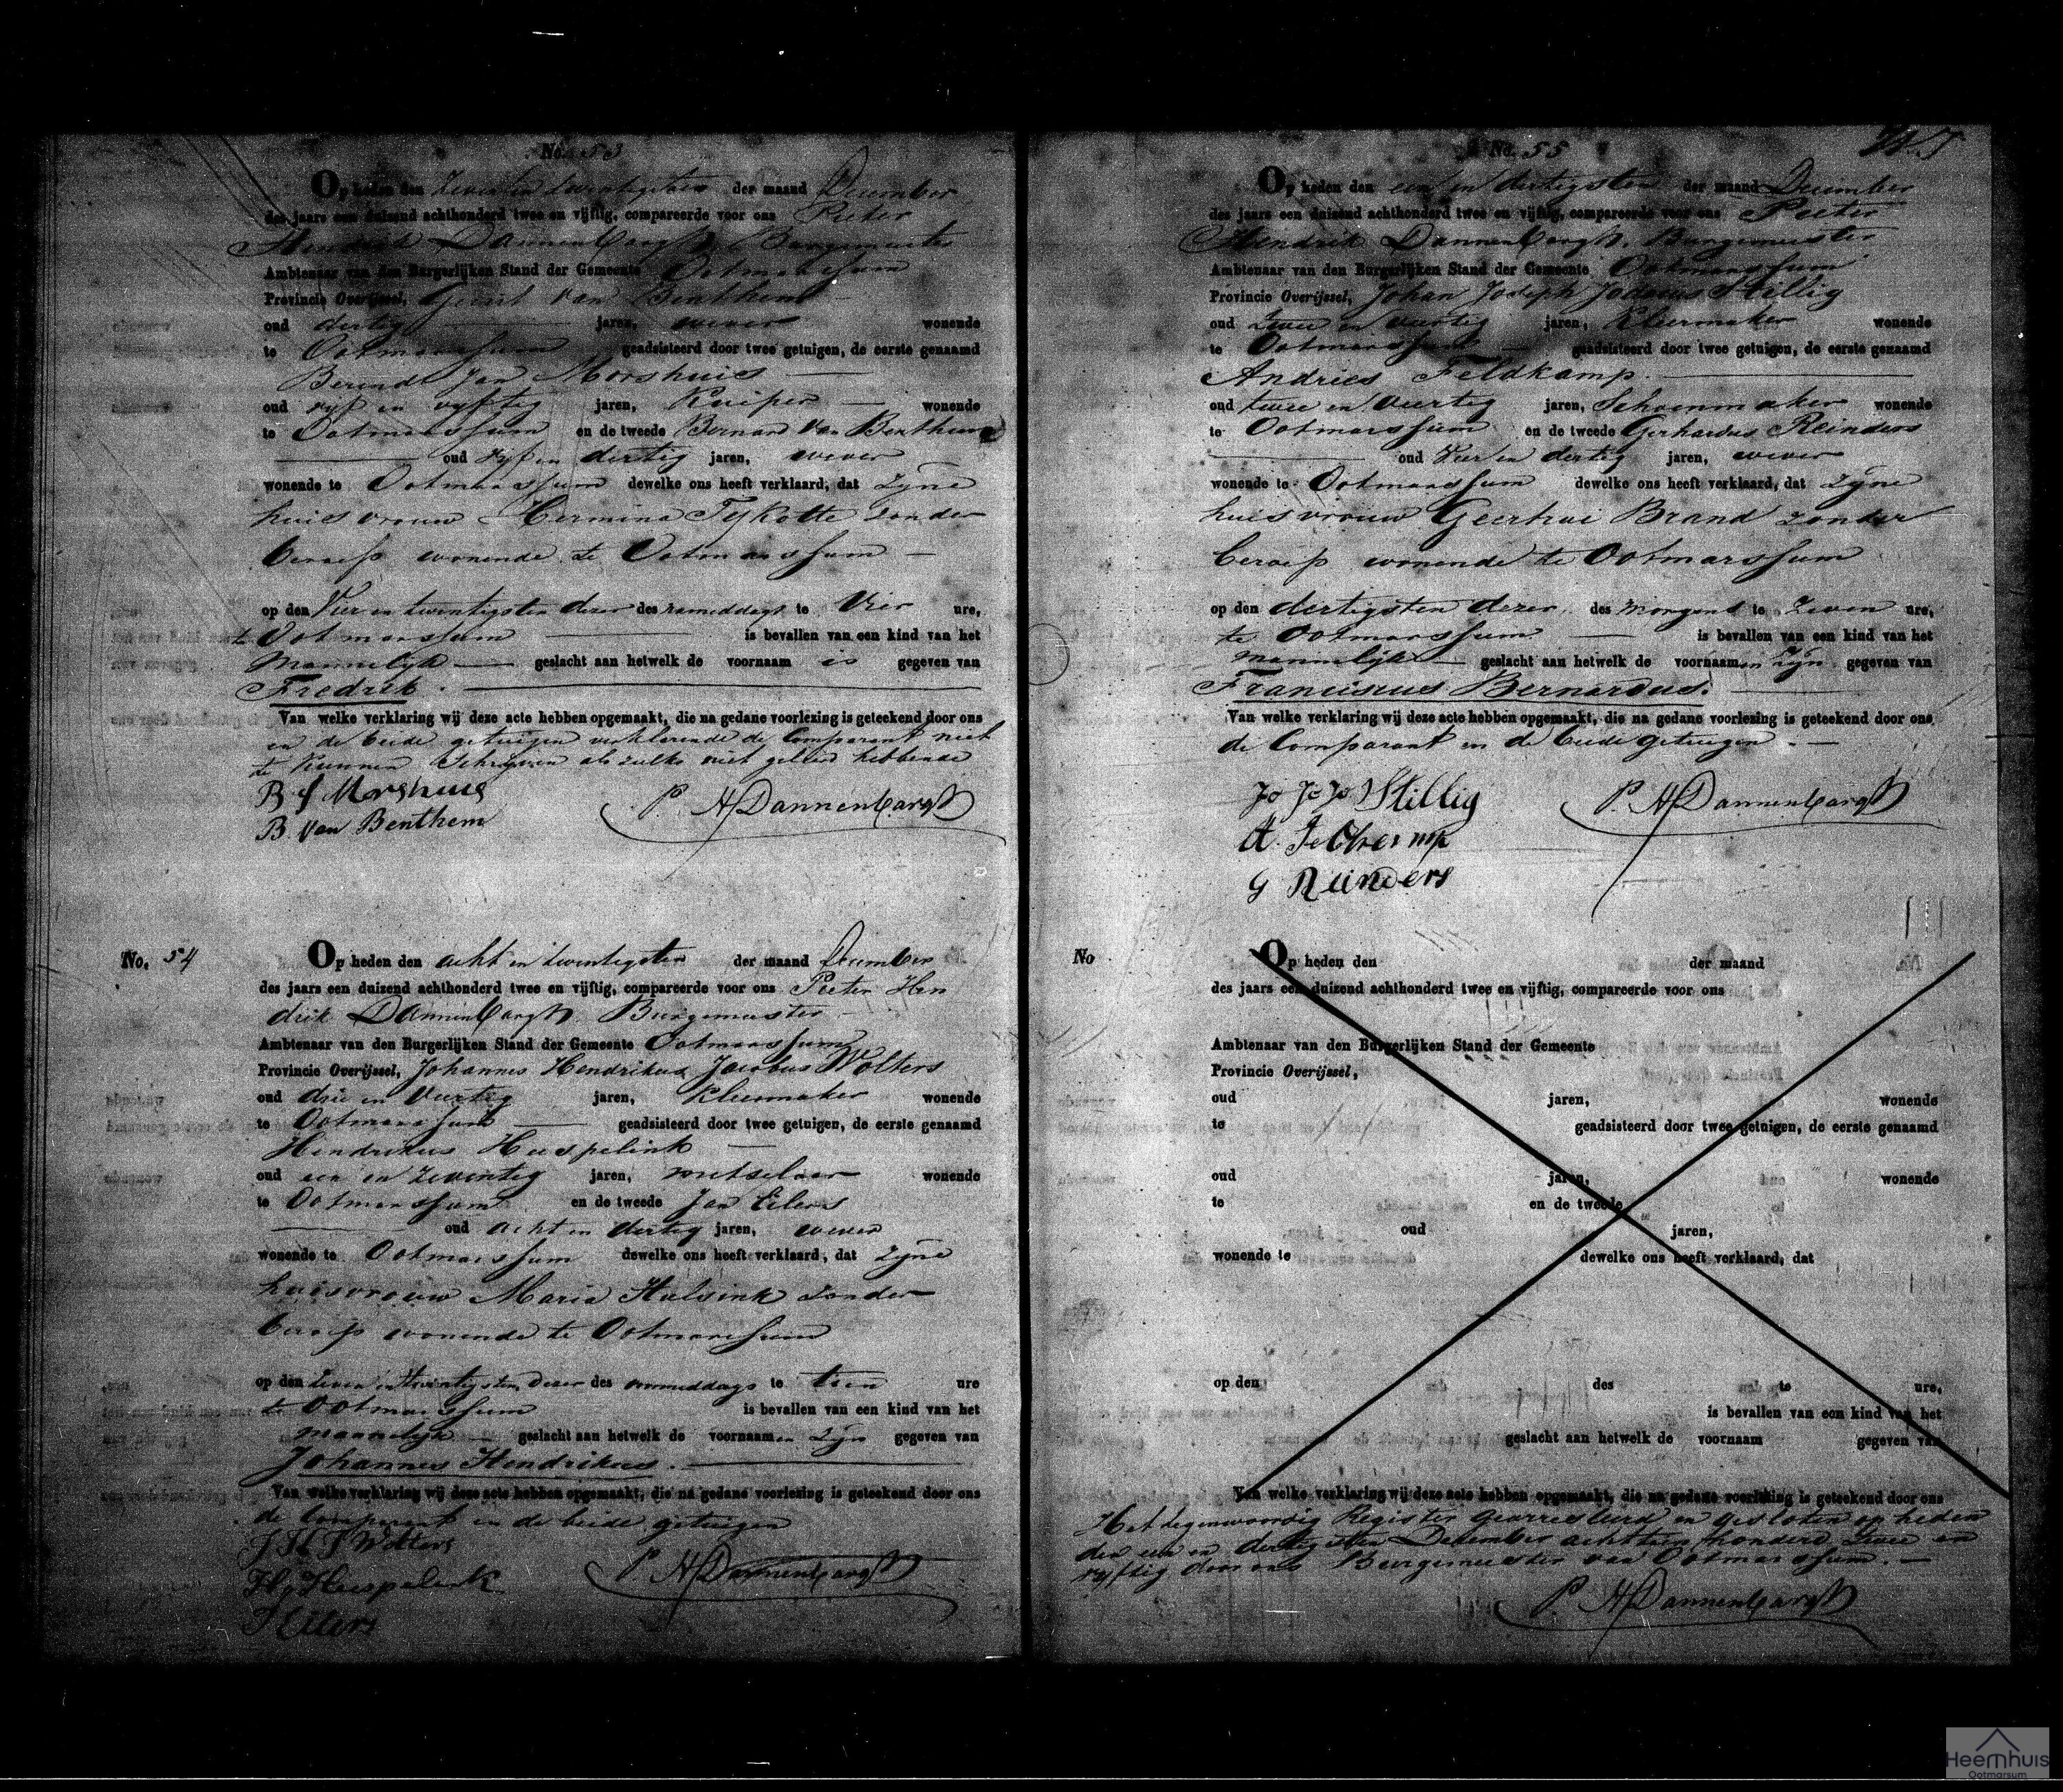 No. 53
Op heden den Zeven en twintigsten der maand December
des jaars een duizend achthonderd twee en vijftig, compareerde voor ons Pieter
Hendrik Dannenbargh, Burgemeester
Ambtenaar van den Burgerlijken Stand der Gemeente Ootmarssum
Provincie Overijssel, Geert van Benthem
oud dertig jaren, wever wonende
te Ootmarssum geadsisteerd door twee getuigen, de eerste genaamd
Berend Jan Morshuis
oud vyf en vyftig jaren, Kuiper wonende
te Ootmarssum en de tweede Bernard van Benthem
oud vyf en dertig jaren, wever
wonende te Ootmarssum dewelke ons heeft verklaard, dat zyne
huisvrouw Hermina Tijkotte zonder
beroep wonende te Ootmarssum
op den Vier en twintigsten dezer des nameddags te Vier ure,
te Ootmarssum is bevallen van een kind van het
Mannelijk geslacht aan hetwelk de voornaam is gegeven van
Fredrik.
Van welke verklaring wij deze acte hebben opgemaakt, die na gedane voorlezing is geteekend door ons
en de beide getuigen verklarende de Comparant niet
te kunnen Schryven als zulks niet geleerd hebbende
B J Morshuis
B. van Benthem
P. H Dannenbargh
No. 54
Op heden den acht en twintigsten der maand December
des jaars een duizend achthonderd twee en vijftig, compareerde voor ons Pieter Hen
drik Dannenbargh. Burgemeester
Ambtenaar van den Burgerlijken Stand der Gemeente Ootmarssum
Provincie Overijssel, Johannes Hendrikus Jacobus Wolters
oud drie en Veertig jaren, Kleermaker wonende
te Ootmarssum geadsisteerd door twee getuigen, de eerste genaamd
Hendrikus Heespelink
oud een en zeventig jaren, metselaar wonende
te Ootmarssum en de tweede Jan Eilers
oud acht en dertig jaren, wever
wonende te Ootmarssum dewelke ons heeft verklaard, dat zyne
huisvrouw Maria Hulsink zonder
beroep wonende te Ootmarssum
op den zeven en twintigsten dezer des voormiddags te tien ure
te Ootmarssum is bevallen van een kind van het
mannelyk geslacht aan hetwelk de voornaamen zyn gegeven van
Johannes Hendrikus.
Van welke verklaring wij deze acte hebben opgemaakt, die na gedane voorlezing is geteekend door ons
de Comparant en de beide getuigen
J H J Wolters
H, Heespelink
J Eilers
P. H Dannenbargh
No. 55
Op heden den een en dertigsten der maand December
des jaars een duizend achthonderd twee en vijftig, compareerde voor ons Pieter
Hendrik Dannenbargh. Burgemeester
Ambtenaar van den Burgerlijken Stand der Gemeente Ootmarssum
Provincie Overijssel, Johan Joseph Jodocus Stillig
oud twee en veertig jaren, Kleermaker wonende
te Ootmarssum geadsisteerd door twee getuigen, de eerste genaamd
Andries Feldkamp.
oud twee en Veertig jaren, Schoenmaker wonende
te Ootmarssum en de tweede Gerhardus Reinders
oud Vier en dertig jaren, wever
wonende te Ootmarssum dewelke ons heeft verklaard, dat zyne
huisvrouw Geertrui Brand zonder
beroep wonende te Ootmarssum
op den dertigsten dezer, des morgens te zeven ure,
te Ootmarssum is bevallen van een kind van het
mannelijk geslacht aan hetwelk de voornaamen zyn gegeven van
Franciscus Bernardus.
Van welke verklaring wij deze acte hebben opgemaakt, die na gedane voorlezing is geteekend door ons
de Comparant en de beide getuigen.
Jo Jo Jo Stillig
A. Feldkamp
G Reinders
P. H Dannenbargh
No
Op heden den der maand
des jaars een duizend achthonderd twee en vijftig, compareerde voor ons
Ambtenaar van den Burgerlijken Stand der Gemeente
Provincie Overijssel,
oud jaren, wonende
te geadsisteerd door twee getuigen, de eerste genaamd
oud jaren, wonende
te en de tweede
oud jaren,
wonende te dewelke ons heeft verklaard, dat
op den des te ure,
is bevallen van een kind van het
geslacht aan hetwelk de voornaam gegeven van
Van welke verklaring wij deze acte hebben opgemaakt, die na gedane voorlezing is geteekend door ons
Het tegenwoordig Register gearresteerd en gesloten op heden
den een en dertigsten December achttien honderd twee en
vyftig door ons Burgemeester van Ootmarssum.
P. H Dannenbargh
Heemhuis
Ootmarsum